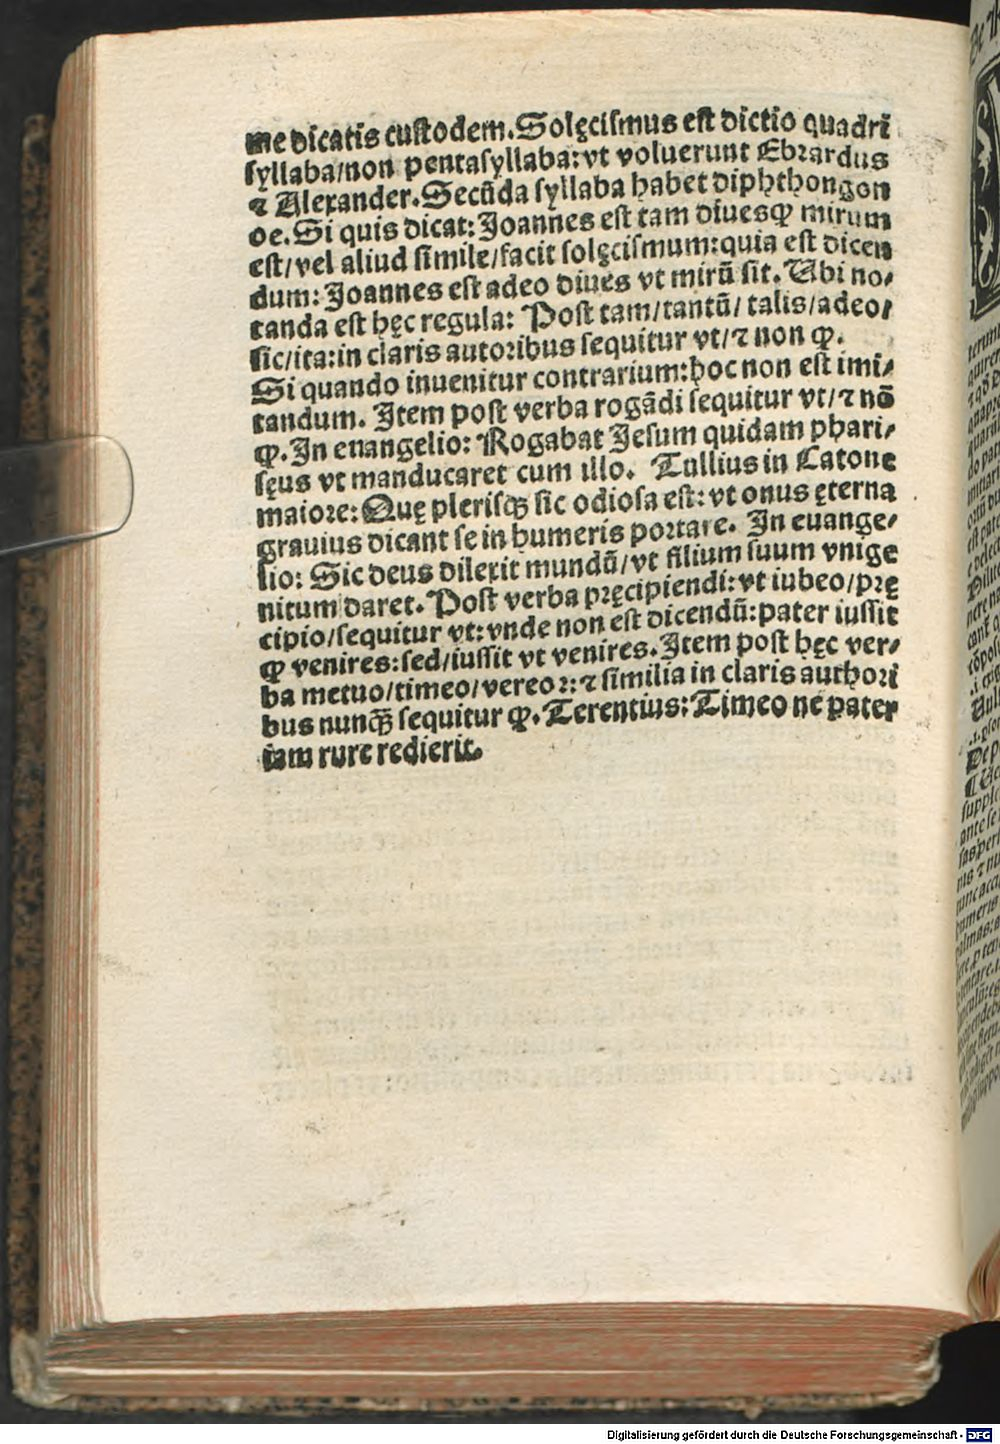 me dicatis custodem. Solęcismus est dictio quadri
syllaba/non pentasyllaba: vt voluerunt Ebrardus
⁊ Alexander. Secūda syllaba habet diphthongon
oe. Si quis dicat: Joannes est tam diues ꝙ mirum
est/vel aliud simile/facit solęcismum: quia est dicen
dum: Joannes est adeo diues vt mirū sit. Ubi no⸗
tanda est hęc regula: Post tam/tantū/talis/adeo/
sic/ita: in claris autoribus sequitur vt/⁊ non ꝙ.
Si quando inuenitur contrarium: hoc non est imi⸗
tandum. Item post verba rogādi sequitur vt/⁊ nō
ꝙ. In euangelio: Rogabat Jesum quidam phari⸗
sęus vt manducaret cum illo. Tullius in Catone
maiore: Quę plerisqꝫ sic odiosa est: vt onus ęterna
grauius dicant se in humeris portare. In euange⸗
lio: Sic deus dilexit mundū/vt filium suum vnige
nitum daret. Post verba pręcipiendi: vt iubeo/prę
cipio/sequitur vt: vnde non est dicendū: pater iussit
ꝙ venires: sed/iussit vt venires. Item post hęc ver⸗
ba metuo/timeo/vereor: ⁊ similia in claris authori
bus nunqꝫ̄ sequitur ꝙ. Terentius: Timeo ne pater
iam rure redierit.
Digitalisierung gefördert durch die Deutsche Forschungsgemeinschaft - DFG